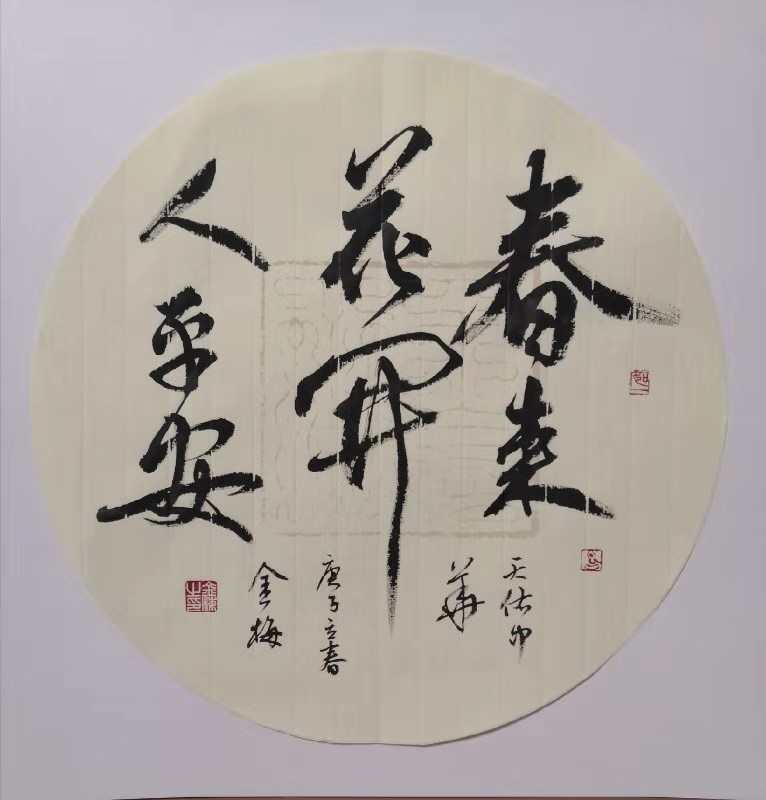 春来
花開
人平安
天佑中
華
庚子立春
金梅